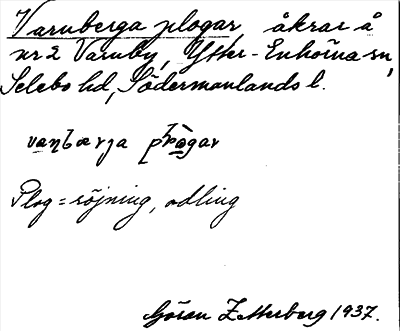 Varuberga plogar, åkrar å
nr 2 Varuby, Ytter-Enhörna sn,
Selebo hd, Södermanlands l.
Plog = röjning, odling
Göran Zetterberg 1937.